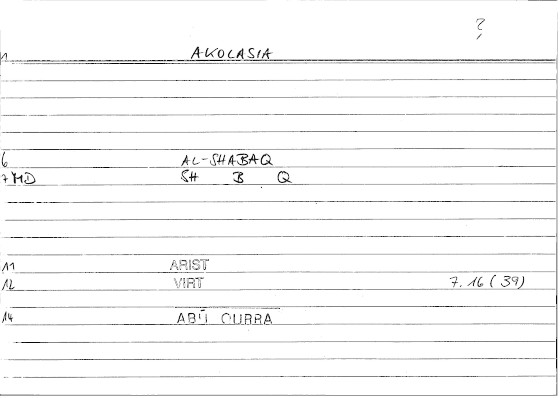 ?
1 AKOLASIA
6 AL-SHABAQ
7 MD SH B Q
11 ARIST
12 VIRT 7.16 (39)
14 ABŪ QURRA